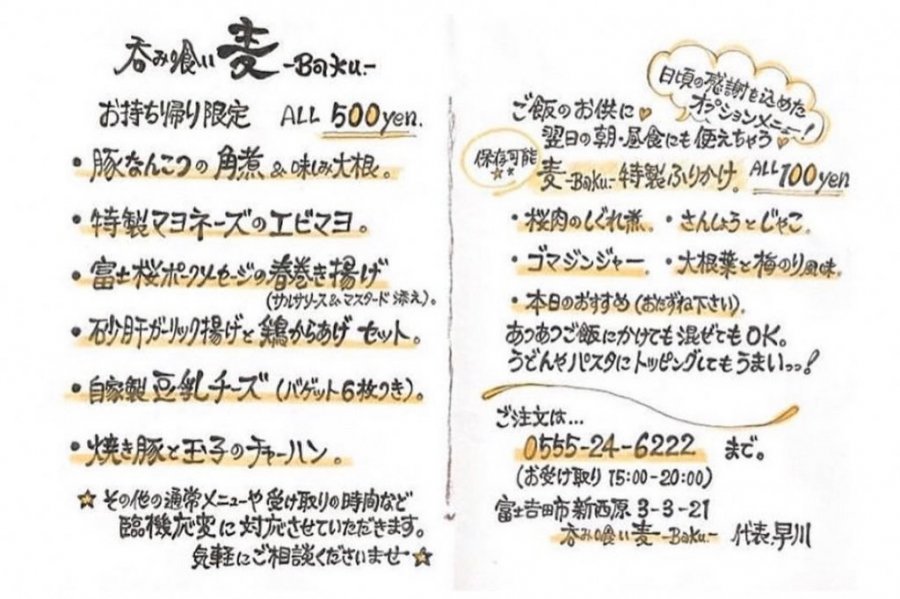 呑み喰い 麦 -Baku.-
お持ち帰り限定 ALL 500yen.
・豚なんこつの角煮&味しみ大根。
・特製マヨネーズのエビマヨ。
・富士桜ポークソーセージの春巻き揚げ
(サルサソース&マスタード添え)。
・砂肝ガーリック揚げと鶏からあげセット。
・自家製豆乳チーズ(バゲット6枚つき)。
・焼き豚と玉子のチャーハン。
☆その他の通常メニューや受け取りの時間など
臨機応変に対応させていただきます。
気軽にご相談くださいませ☆
日頃の感謝を込めた
オプションメニュー!
ご飯のお供に♥
翌日の朝・昼食にも使えちゃう♥
保存可能
☆☆
麦-Baku.-特製ふりかけ。ALL 100yen
・桜肉のしぐれ煮。・さんしょうとじゃこ。
・ゴマジンジャー。・大根葉と梅のり風味。
・本日のおすすめ(おたずね下さい)。
あつあつご飯にかけても混ぜてもOK。
うどんやパスタにトッピングしてもうまいっっ!
ご注文は...
0555-24-6222 まで。
(お受け取り 15:00-20:00)
富士吉田市新西原3-3-21
呑み喰い麦-Baku.- 代表.早川